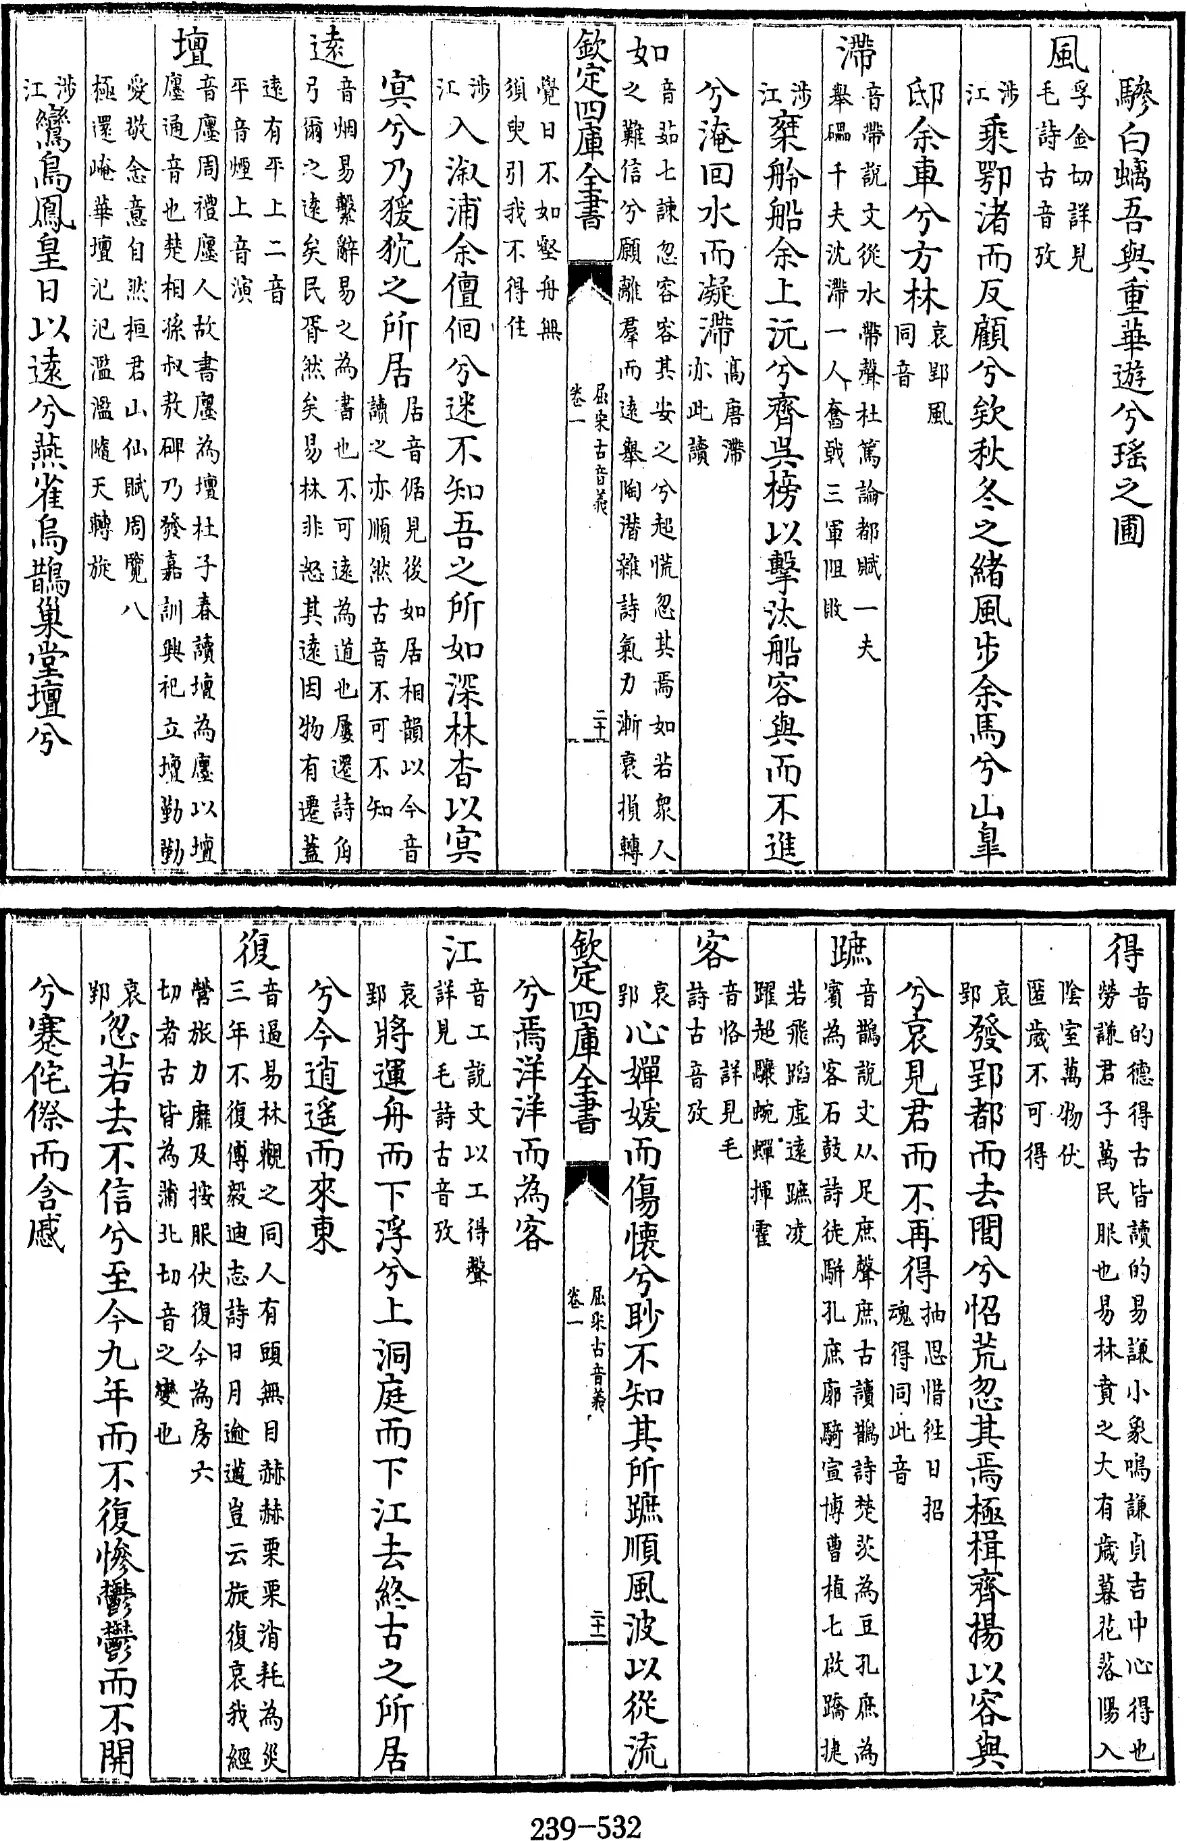 驂白螭吾與重華遊兮瑤之圃
風
孚金切詳見
毛詩古音攷
涉
江
乘鄂渚而反顧兮欸秋冬之緒風步余馬兮山臯
邸余車兮方林
哀郢風
同音
滯
音帶說文從水帶聲杜篤論都賦一夫
舉礧千夫沈滯一人奮戟三軍阻敗
涉
江
椉舲船余上沅兮齊吳榜以擊汰船容與而不進
兮淹回水而凝滯
高唐滯
亦此讀
如
音茹七諫忽容容其安之兮超慌忽其焉如若衆人
之難信兮願離羣而遠舉陶潛雜詩氣力漸衰損轉
欽定四庫全書
屈宋古音義
卷一
二十
覺日不如壑舟無
須臾引我不得住
涉
江
入溆浦余儃佪兮迷不知吾之所如深林杳以冥
冥兮乃猨狖之所居
居音倨見後如居相韻以今音
讀之亦順然古音不可不知
遠
音烟易繫辭易之為書也不可遠為道也屢遷詩角
弓爾之遠矣民胥然矣易林非怒其遠因物有遷蓋
遠有平上二音
平音煙上音演
壇
音廛周禮廛人故書廛為壇杜子春讀壇為廛以壇
廛通音也楚相孫叔敖碑乃發嘉訓興祀立壇勤勤
愛敬念意自然桓君山仙賦周覽八
極還崦華壇氾氾濫濫隨天轉旋
涉
江
鸞鳥鳳皇日以遠兮燕雀烏鵲巢堂壇兮
得
音的德得古皆讀的易謙小象鳴謙貞吉中心得也
勞謙君子萬民服也易林賁之大有歲暮花落陽入
陰室萬物伏
匿歲不可得
哀
郢
發郢都而去閭兮怊荒忽其焉極楫齊揚以容與
兮哀見君而不再得
抽思惜往日招
魂得同此音
蹠
音鵲說文从足庶聲庶古讀鵲詩楚茨為豆孔庶為
賓為客石鼓詩徒騈孔庶廓騎宣博曹植七啟蹻捷
若飛蹈虚遠蹠凌
躍超驤蜿蟬揮霍
哀
郢
心嬋媛而傷懷兮眇不知其所蹠順風波以從流
客
音恪詳見毛
詩古音攷
欽定四庫全書
屈宋古音義
卷一
二十一
兮焉洋洋而為客
江
音工說文以工得聲
詳見毛詩古音攷
哀
郢
將運舟而下浮兮上洞庭而下江去終古之所居
兮今逍遙而來東
復
音逼易林觀之同人有頭無目赫赫栗栗消耗為災
三年不復傅毅迪志詩日月逾邁豈云旋復哀我經
營旅力靡及按服伏復今為房六
切者古皆為蒲北切音之變也
哀
郢
忽若去不信兮至今九年而不復慘鬱鬱而不開
兮蹇侘傺而含慼
239-532